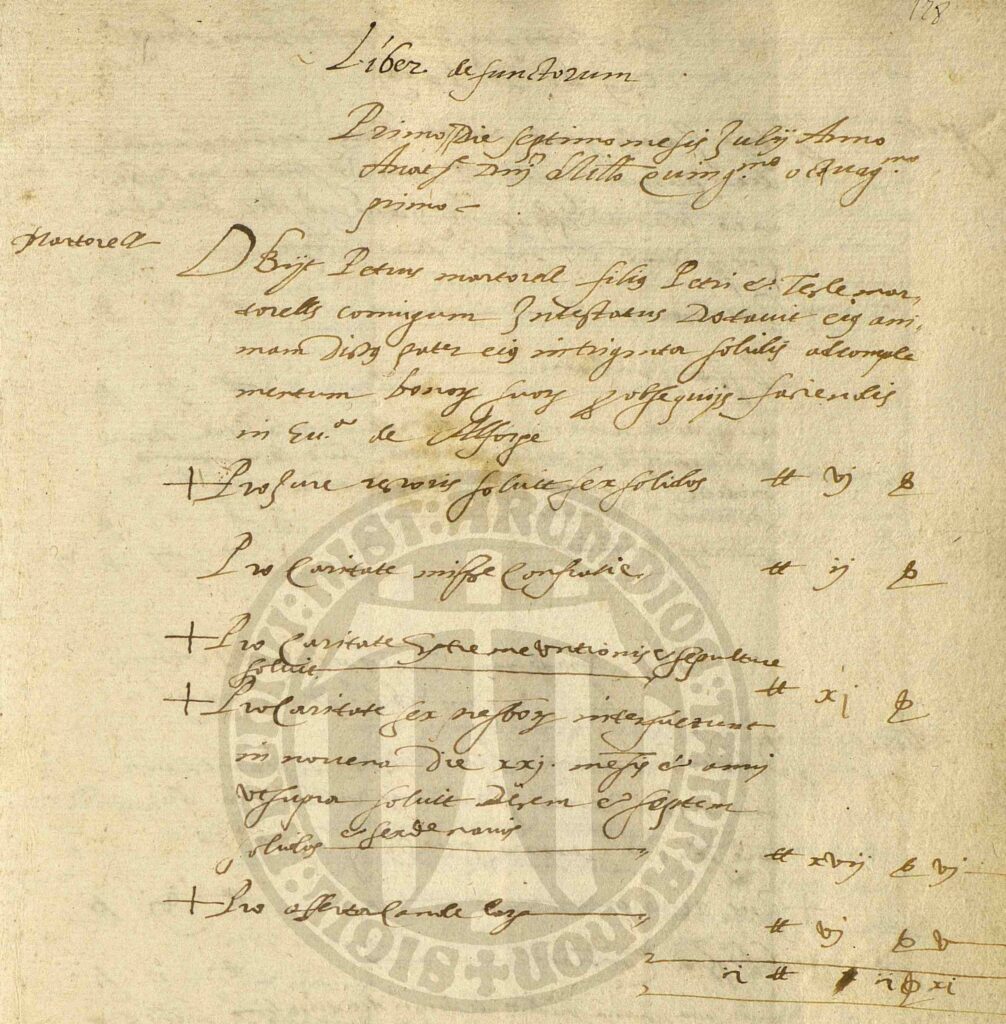 128
Liber defunctorum
Primo Die septimo mesis Julij Anno
Anat.e Dnj Millo quing.mo octuag.mo
primo
Martorell
Obijt Petrus martorell filiq Petri et Tecle mar,
torells coniugum Intestatus Dotavit eiq ani,
mam Dictq pater eiq in triginta solidis ad comple
mentum bonoy suoy p obsequijs faciendis
in Eccl.a de Alforge
+ Pro Jure rectoris soluit sex solidos # vj
Pro Caritate misse Confratie # ij
+ Pro Caritate extreme untionis et sepulture
soluit # xj
+ Pro Caritate sex presboy interfuerunt
in novena die xxj. mesis et anni
ut supra soluit Decem et septem
solidos et sex denarios # xvij vj
+ Pro offertor Candelarq # vj v
ij # ij xj
SIGIL